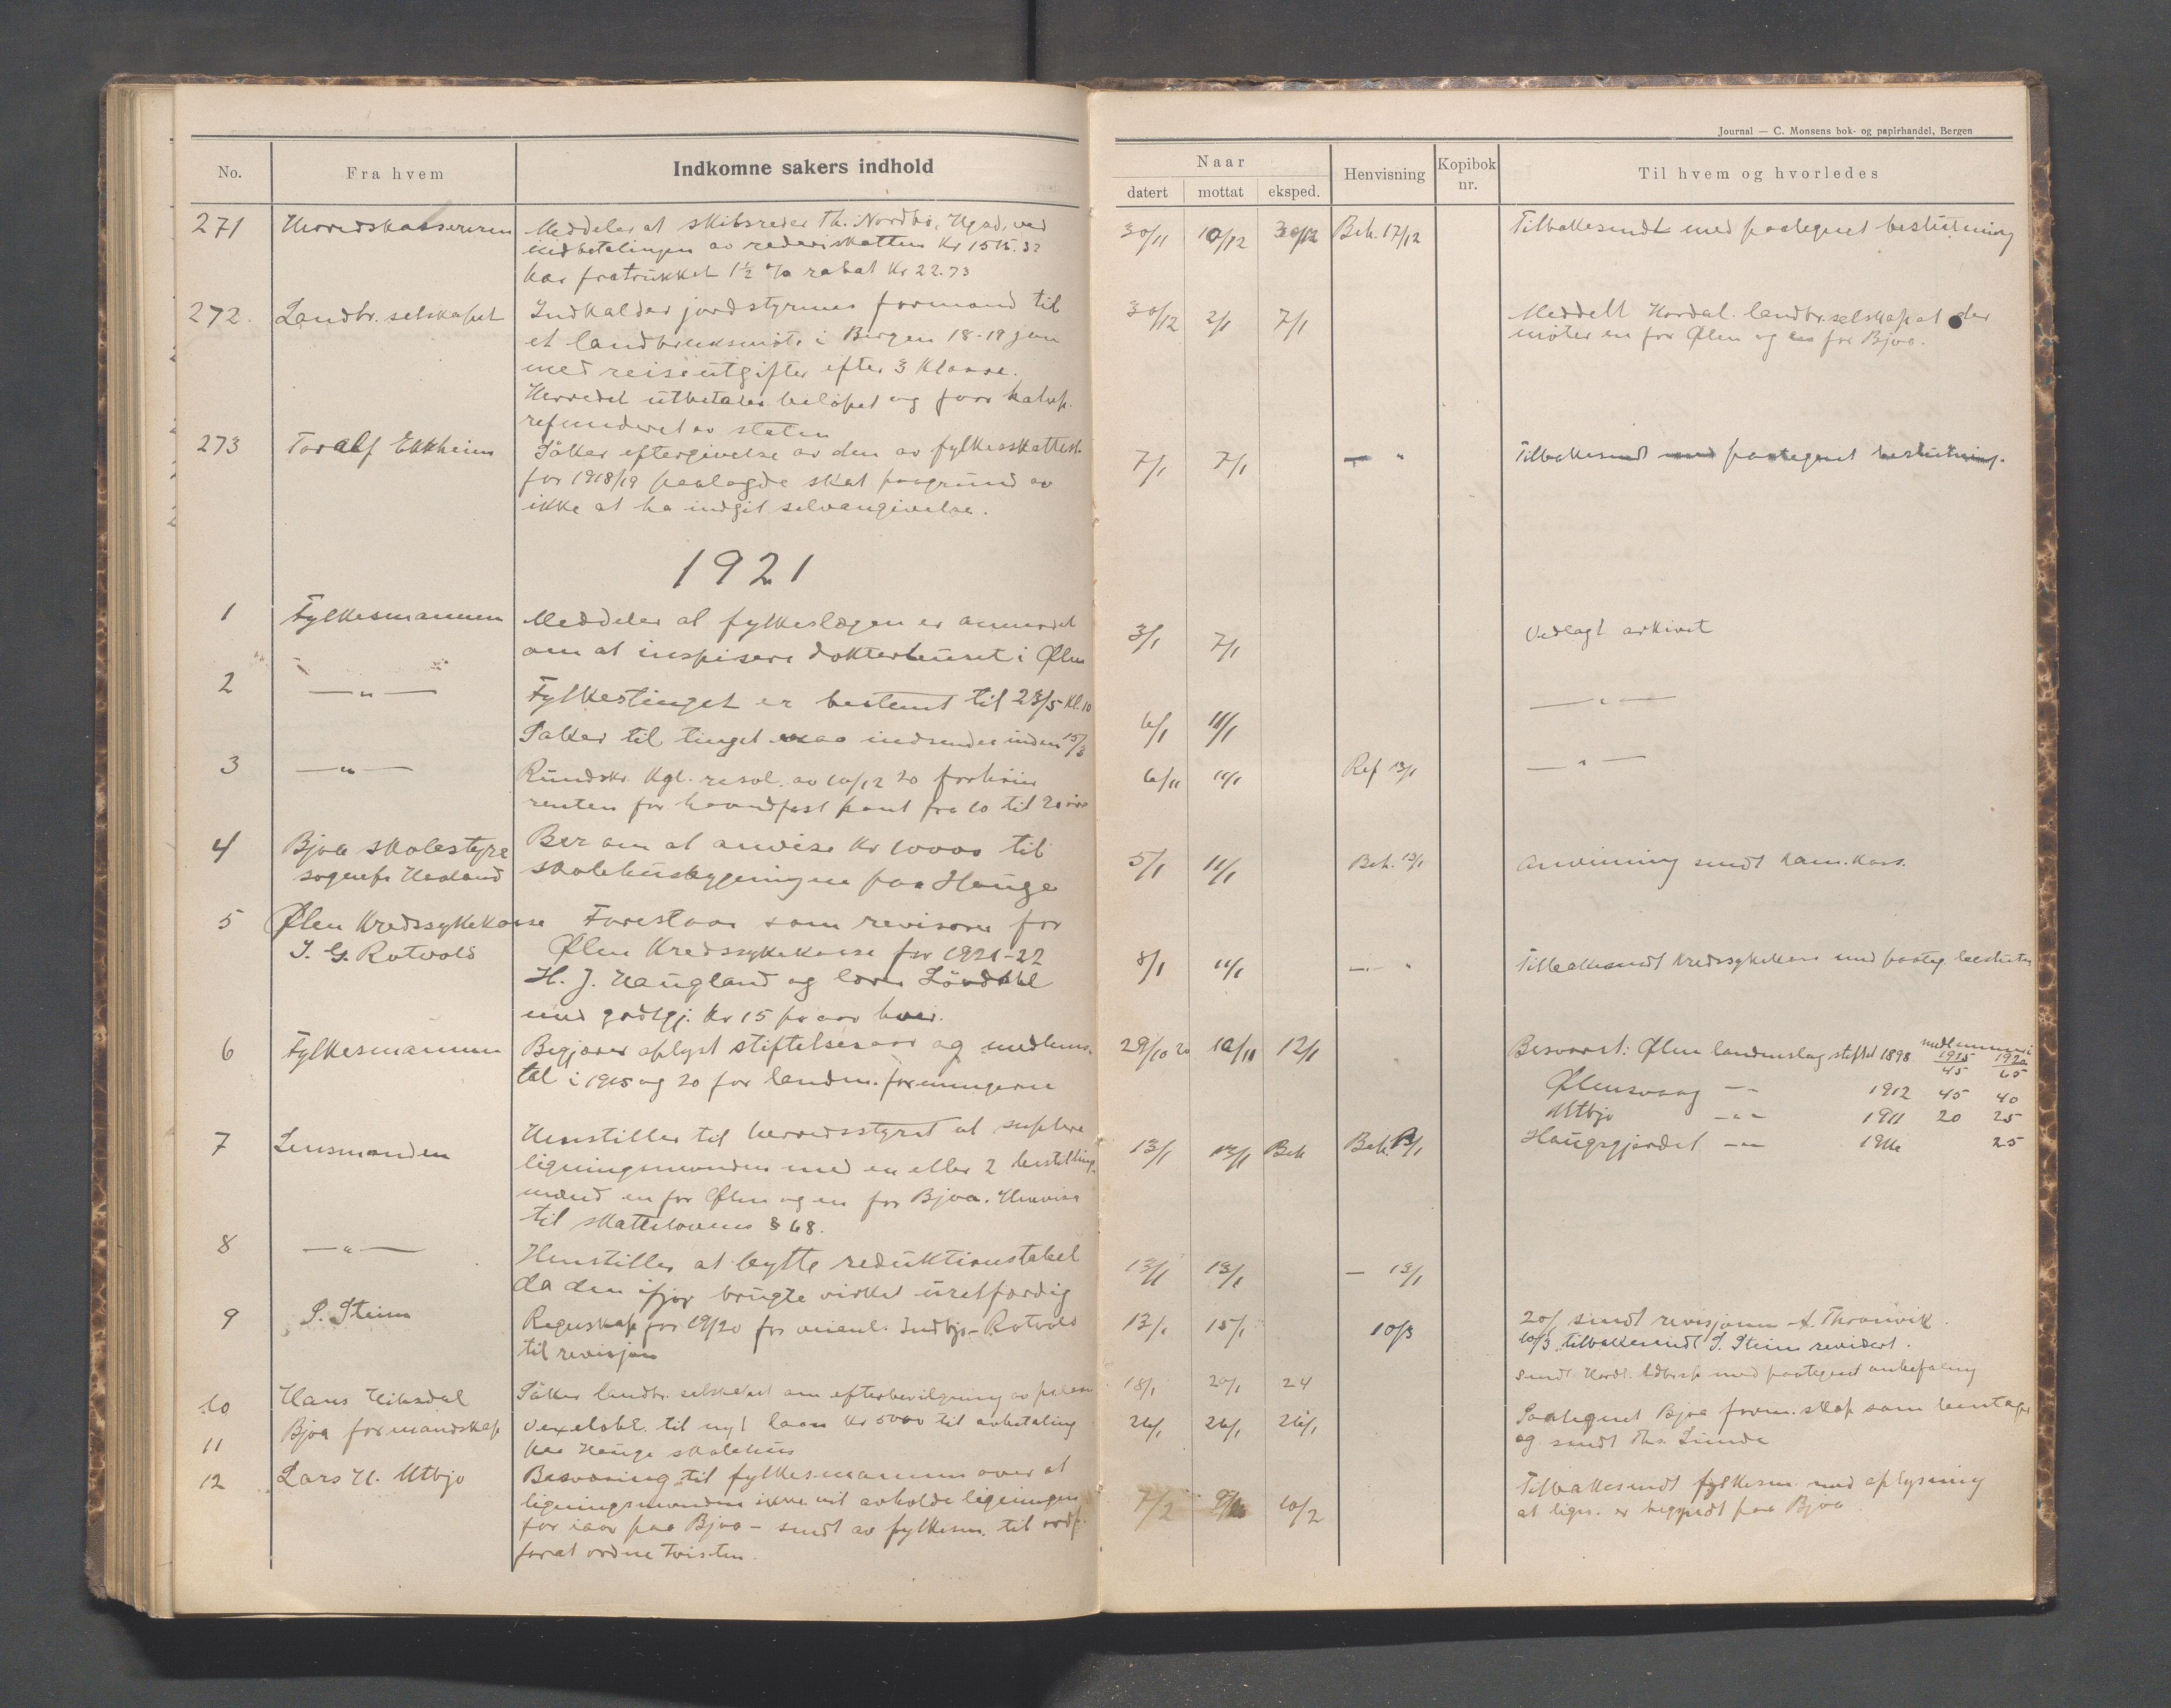 Journal — C. Monsens bok- og papirhandel, Bergen
No. Fra hvem Indkomne sakers indhold
Naar Henvisning Kopibok nr. Til hvem og hvorledes
datert mottat eksped.
271 Herredskassereren Meddeler at skibsreder Th. Nordbö, Hgsd, ved
indbetalingen av rederiskatten Kr 1515.32
har fratrukket 1½ % rabat Kr 22.73
30/11 10/12 30/12 Beh. 17/12 Tilbakesendt med paategnet beslutning
272. Landbr. selskapet Indkalder jordstyrenes formand til
et landbruksmöte i Bergen 18-19 jan
med reiseutgifter efter 3 Klasse.
Herredet utbetaler belöpet og faar halvp.
refunderet av staten
30/12 2/1 7/1 Meddelt Hordal. landbr.selskap at der
möter en for Ølen og en for Bjoa.
273 Toralf Ekkheim Söker eftergivelse av den av fylkesskattest.
for 1918/19 paalagde skat paagrund av
ikke at ha indgit selvangivelse.
7/1 7/1 — " Tilbakesendt med paategnet beslutning.
1921
1 Fylkesmannen Meddeler at fylkeslægen er anmodet
om at inspisere dokterhuset i Ølen
3/1 7/1 Vedlagt arkivet
2 —"— Fylkestinget er bestemt til 23/5 Kl. 10
Saker til tinget maa indsendes inden 15/3
6/1 11/1 —"—
3 —"— Rundskr. Kgl. resol. av 10/12 20 forhöier
renten for haandfast pant fra 10 til 20 öre
6/11 11/1 Ref 13/1 —"—
4 Bjoa skolestyre Ber om at anvise Kr 10000 til
sognefr Hadland skolehusbygningen paa Hauge
5/1 11/1 Beh. 13/1 Anvisning sendt kom.kass.
5 Ølen Kredssykekasse Foreslaar som revisorer for
I. G. Rotvold Ølen Kredssykekasse for 1921-22
H. J. Haugland og lærer Lövdahl
med godtgj. Kr 15 pr aar hver.
8/1 11/1 —"— Tilbakesendt Kredssykekasse med paateg. beslutn
6 Fylkesmannen Begjærer oplyst stiftelsesaar og medlems-
tal i 1915 og 20 for landm. foreningerne
29/10 20 10/11 12/1 Besvaret: Ølen landmslag stiftet 1898 medlemmer i
1915 1920
45 65
Ølensvaag —"— 1912 45 40
Utbjo —"— 1911 20 25
Haugsgjerdet —"— 1916 25
7 Lensmanden Henstiller til herredsstyret at suplere
ligningsnevnden med en eller 2 bestillings-
mænd en for Ølen og en for Bjoa. Henviser
til skattelovens § 68.
13/1 13/1 Beh Beh. 13/1
8 —"— Henstiller at bytte reduktionstabel
da den ifjor brugte virket uretfærdig
13/1 13/1 — 13/1
9 S. Steim Regnskap for 19/20 for Indbjo-Rotvold
til revisjon
13/1 15/1 10/3 20/1 sendt revisjonen A. Thronvik.
10/3 tilbakesendt S. Steim revidert.
10 Hans Heksdal Söker landbr. selskapet om efterbevilgning av
18/1 20/1 24 sendt Hordl. ldbrsk med paategnet anbefaling
11 Bjoa formandskap Vexelobl. til nyt laan Kr 5000 til avbetaling
paa Hauge skolehus
26/1 26/1 26/1 Paategnet Bjoa form.skap som
og sendt Ths. Sunde
12 Lars H. Utbjo Besværing til fylkesmannen over at
ligningsnevnden ikke vil avholde ligningen
for iaar paa Bjoa - sendt av fylkesm. til ordf.
forat ordne tvisten.
7/2 9/2 10/2 Tilbakesendt fylkesm. med oplysning
at lign. er begyndt paa Bjoa